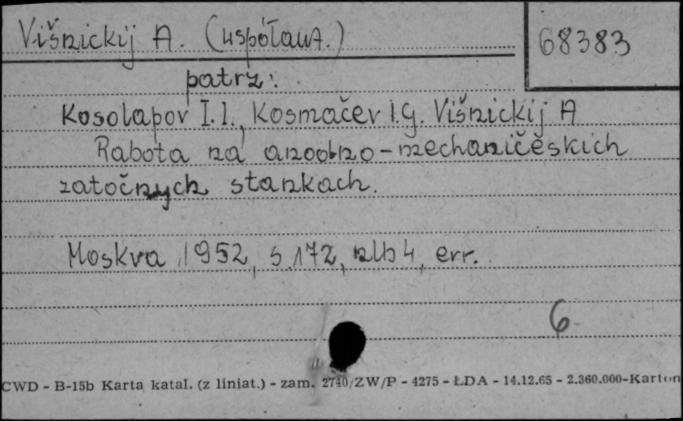 Višnickij A. (współaut.)
68383
patrz:
Kosolapov I.I., Kosmačev I.G. Višnickij A
Rabota na anodno-mechaničeskich
zatočnych stankach.
Moskva, 1952, s. 172, nlb 4, err.
6
CWD - B-15b Karta katal. (z liniat.) - zam. 2740/ZW/P - 4275 - ŁDA - 14.12.65 - 2.360.000-Karton